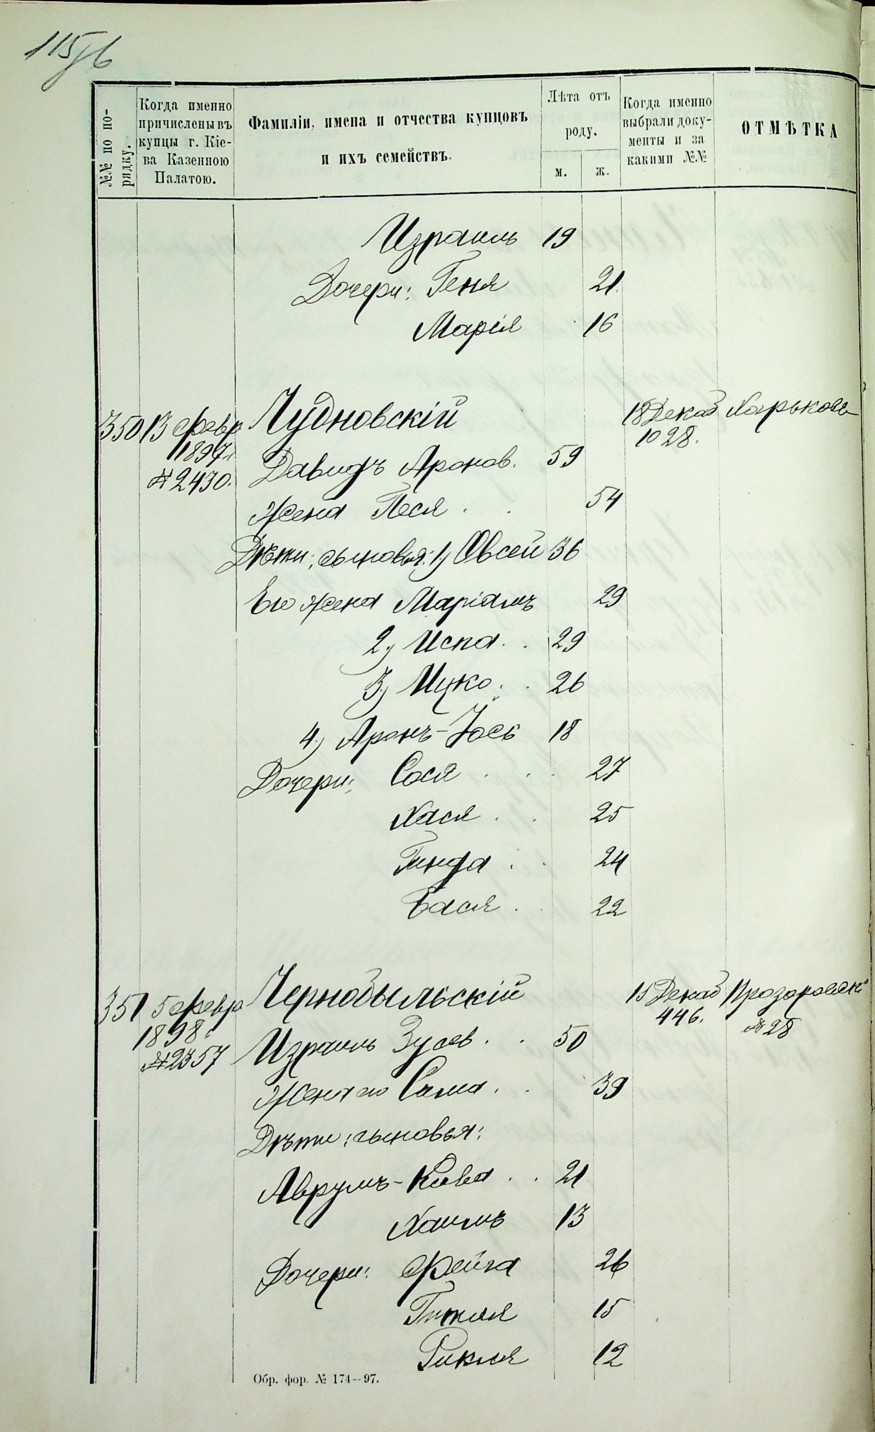 115 об
№№ по порядку.
Когда именно
причислены въ
купцы г. Кіе-
ва Казенною
Палатою.
Фамиліи, имена и отчества купцовъ
и ихъ семействъ.
Лѣта отъ
роду.
м. ж.
Когда именно
выбрали доку-
менты и за
какими №№
ОТМѢТКА
Израиль 19
Дочери: Геня 21
Марія 16
350 13 февр Чудновскій 18 Декаб Харьковъ
1897 г. 1028.
№ 2430. Давидъ Аронов. 59
Жена Песя 54
Дѣти: сыновья: 1) Овсей 36
Его жена Маріамъ 29
2) Испа 29
3) Ицко 26
4) Аронъ-Іось 18
Дочери: Сося 27
Хася 25
Гинда 24
Бася 22
351 5 февр Чернобыльскій 15 Декаб
1898 446. № 28
№ 2357 Израиль Зусев. 50
Жена его Сима 39
Дѣти: сыновья:
Аврумъ-Кива 21
Хаимъ 13
Дочери: Фейга 26
Гитля 15
Рикля 12
Обр. фор. № 174—97.